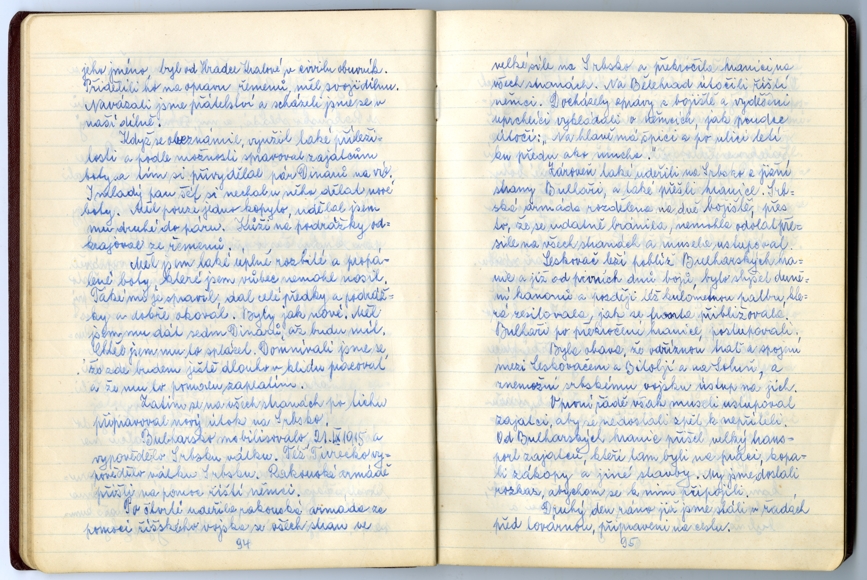 jeho jméno, byl od Hradce Králové, v civilu obuvník.
Přidělili ho na opravu řemenů, měl svoji dílnu.
Navázali jsme přátelství a scházeli jsme se v
naší dílně.
Když se obeznámil, využil také příleži-
tosti a podle možnosti spravoval zajatcům
boty a tím si přivydělal pár Dinárů na
I mladý pan šéf si nechal u něho dělat nové
boty. Měl pouze jedno kopyto, udělal jsem
mu druhé do páru. Kůži na podrážky od-
krajoval ze řemenů.
Měl jsem také úplně rozbité a propá-
lené boty, které jsem vůbec nemohl nosit.
Také mě je spravil, dal celé předky a podráž-
ky a dobře okoval. Byly jak nové. Měl
jsem mu dát sedm Dinárů, až budu mít.
Chtěl jsem mu to splácet. Domnívali jsme se,
že zde budem ještě dlouho v klidu pracovat
a že mu tu pomoru zaplatím.
Zatím se na všech stranách po tichu
připravoval nový útok na Srbsko.
Bulharsko mobilisovalo 21.IX 1915 a
vypovědělo Srbsku válku. Též Turecko vy-
povědělo válku Srbsku. Rakouské armádě
přišli na pomoc říští němci.
Po čtvrté udeřila rakouská armáda za
pomoci říšského vojska se všech stran ve
94
velké síle na Srbsko a překročila hranici na
všech stranách. Na Bělehrad útočili říští
němci. Docházely zprávy z bojiště a vyděšení
uprchlíci vykládali o němcích, jak prudce
útočí: „Na hlavě má špici a po ulici letí
ku předu ako mucha."
Zároveň také udeřili na Srbsko z jižní
strany Bulhaři, a také přešli hranice. Srb-
ská armáda rozdělena na dvě bojiště, přes
to, že se udatně bránila, nemohla odolat pře-
síle na všech stranách a musela ustupovat.
Leskovač leží poblíž Bulharských hra-
nic a již od prvních dnů bojů, bylo slyšet duně-
ní kanonů a později též kulometnou palbu, kte-
rá zesilovala, jak se fronta přibližovala.
Bulhaři po překročení hranic, postupovali.
Byla obava, že odříznou trať a spojení
mezi Leskovácem a Bitolji a na Soluň, a
znemožní srbskému vojsku ústup na jich.
V první řadě však museli ustupovat
zajatci, aby se nedostali zpět k nepříteli.
Od Bulharských hranic přišel velký trans-
port zajatců, kteří tam byli na práci, kopa-
li zákopy a jiné stavby. My jsme dostali
rozkaz, abychom se k nim připojili.
Druhý den ráno již jsme stáli v řadách
před továrnou, připraveni na cestu.
95